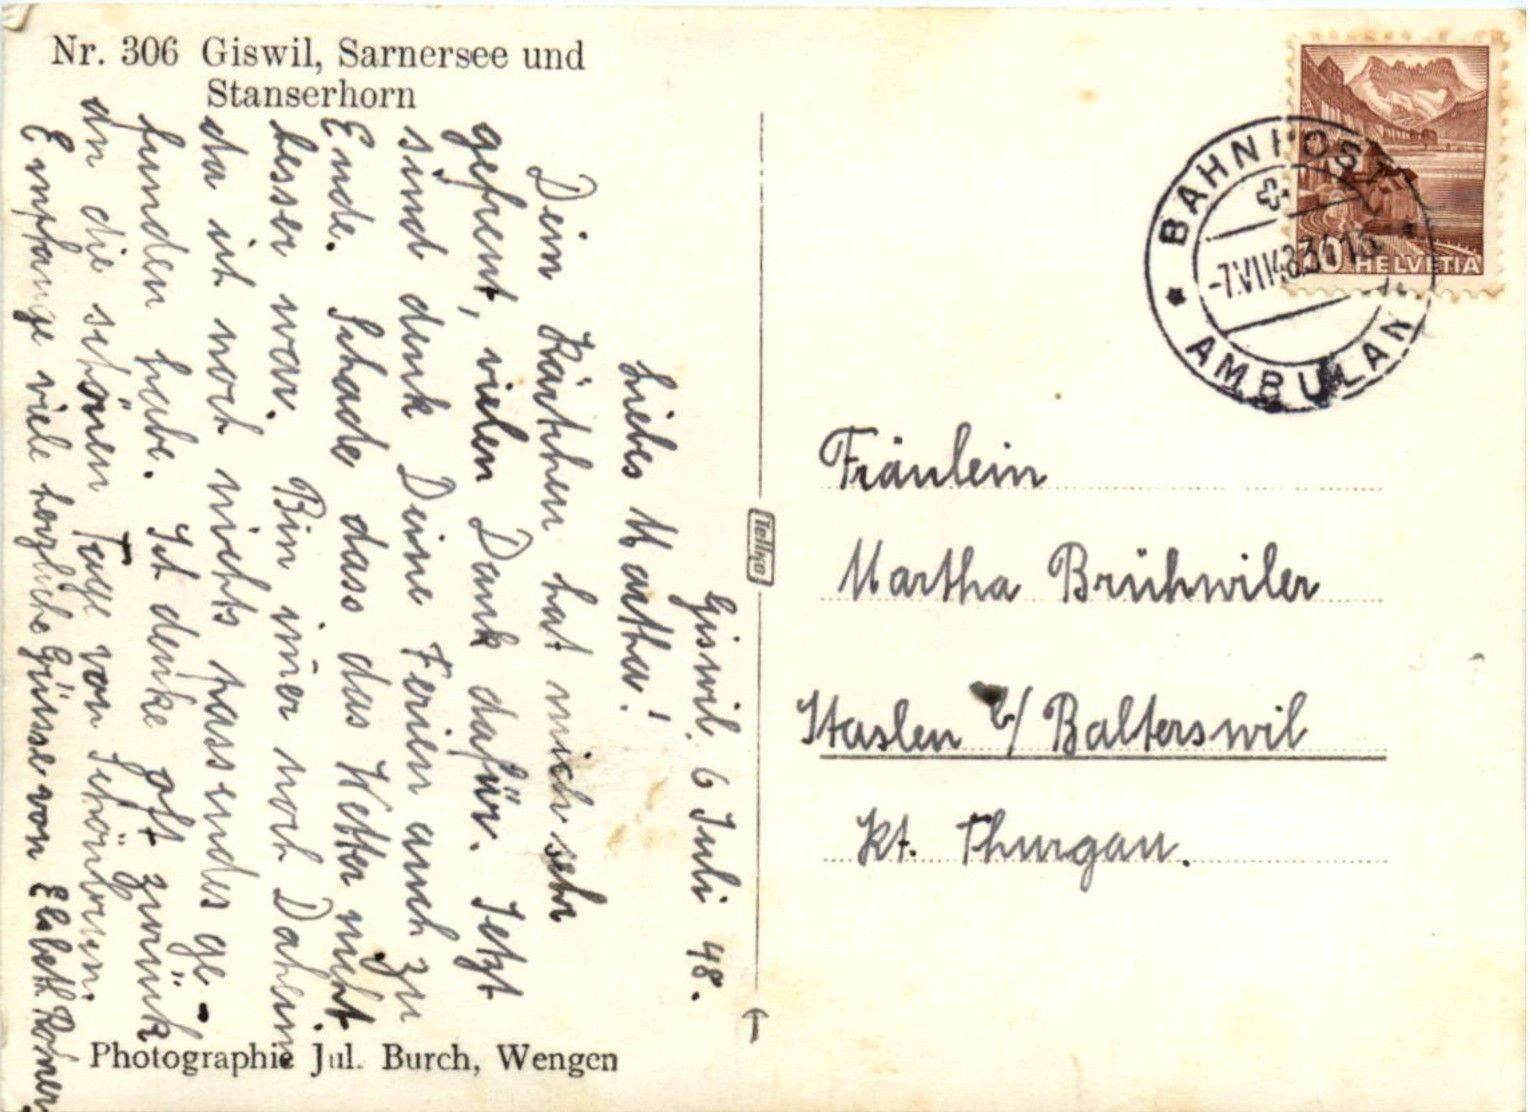 Nr. 306 Giswil, Sarnersee und
Stanserhorn
Giswil. 6 Juli 48.
Liebes Martha!
Dein Kärtchen hat mich sehr
gefreut, vielen Dank dafür. Jetzt
sind denk Deine Ferien auch zu
Ende. Schade dass das Wetter nicht
besser war. Bin im̄er noch Daheim
da ich noch nichts passendes ge-
funden habe. Ich denke oft zurück
an die schönen Tage von Schönbrunn.
Empfange viele herzliche Grüsse von Elsbeth
Photographie Jul. Burch, Wengen
Tellko
BAHNPOST
-7.VII.48
AMBULANT
HELVETIA
Fräulein
Martha Brühwiler
Itaslen b/ Balterswil
Kt. Thurgau.